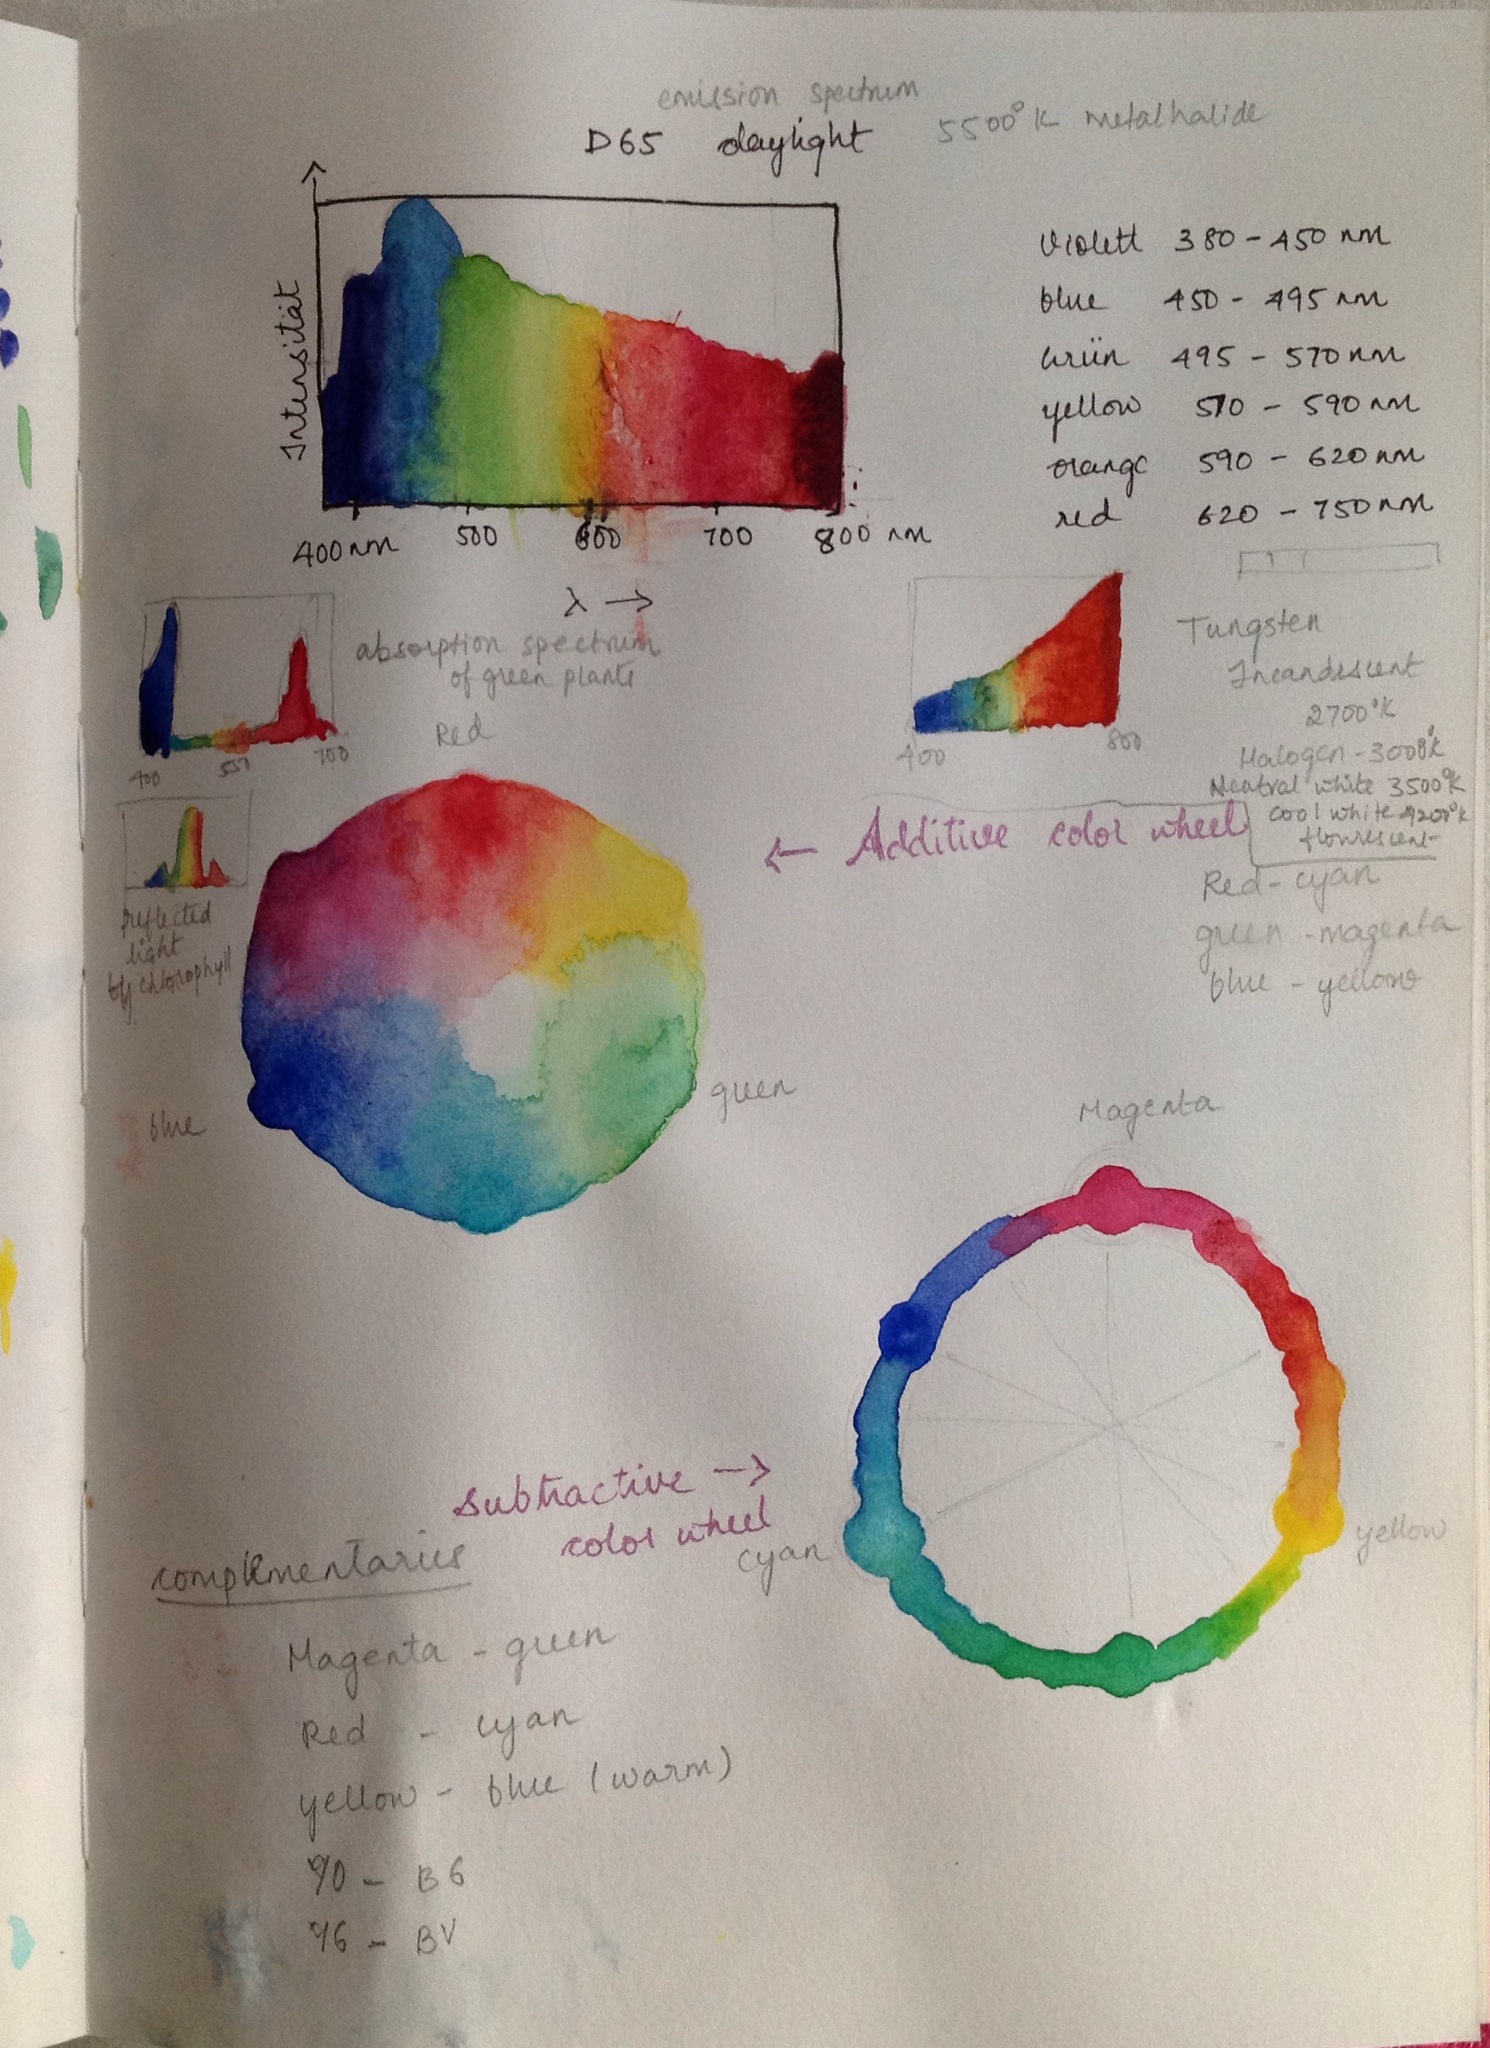 emission spectrum
D65 daylight 5500°K Metalhalide
Intensität
400nm 500 600 700 800 nm
λ →
Violett 380 - 450 nm
blue 450 - 495 nm
Grün 495 - 570 nm
yellow 570 - 590 nm
orange 590 - 620 nm
red 620 - 750 nm
absorption spectrum
of green plants
400 550 700
400 800
Tungsten
Incandescent
2700°K
Halogen - 3000°K
Neutral white 3500°K
cool white 4200°K
Red
← Additive color wheel
Red - cyan
green - magenta
blue - yellow
reflected
light
by chlorophyll
blue
green
Magenta
subtractive →
color wheel
cyan
yellow
Magenta - green
Red - cyan
yellow - blue (warm)
YO - BG
YG - BV